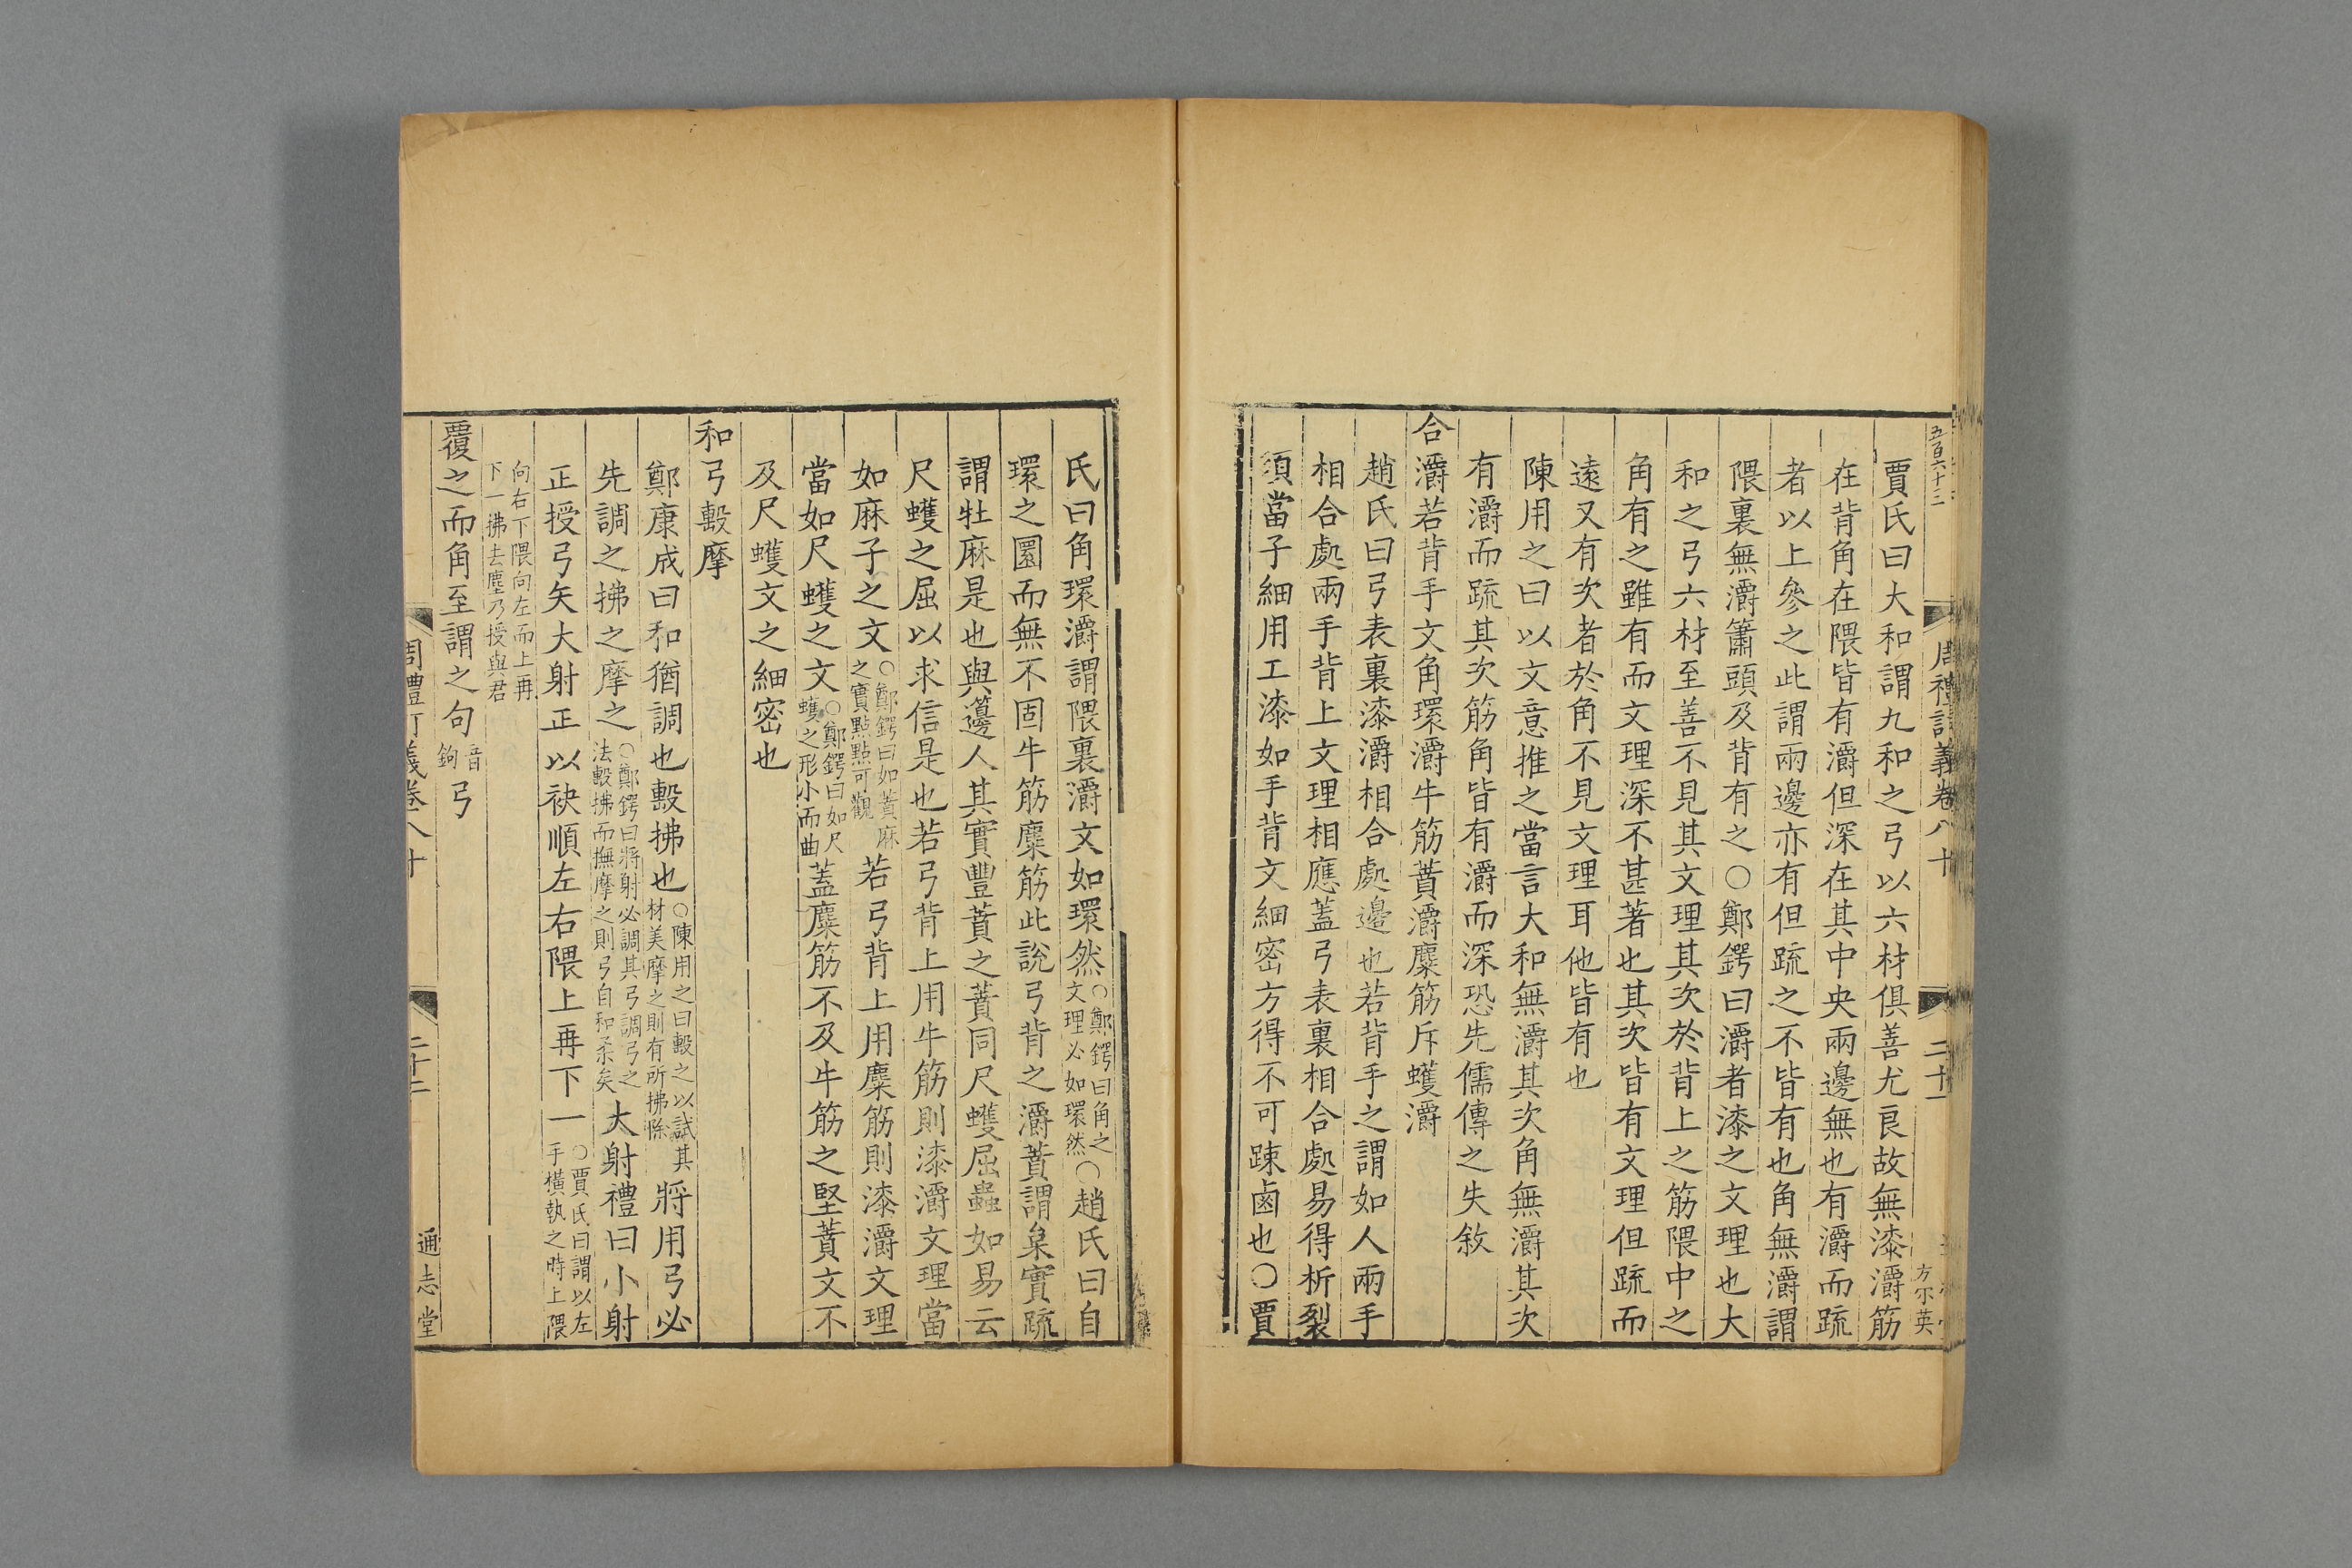 五百六十三
周禮訂義卷八十
二十一
方尔英
賈氏曰大和謂九和之弓以六材俱善尤良故無漆灂筋
在背角在隈皆有灂但深在其中央兩邊無也有灂而疏
者以上參之此謂兩邊亦有但疏之不皆有也角無灂謂
隈裏無灂簫頭及背有之○鄭鍔曰灂者漆之文理也大
和之弓六材至善不見其文理其次於背上之筋隈中之
角有之雖有而文理深不甚著也其次皆有文理但疏而
遠又有次者於角不見文理耳他皆有也
陳用之曰以文意推之當言大和無灂其次角無灂其次
有灂而疏其次筋角皆有灂而深恐先儒傳之失敘
合灂若背手文角環灂牛筋蕡灂麋筋斥蠖灂
趙氏曰弓表裏漆灂相合處邊也若背手之謂如人兩手
相合處兩手背上文理相應蓋弓表裏相合處易得析裂
須當子細用工漆如手背文細密方得不可踈鹵也○賈
氏曰角環灂謂隈裏灂文如環然○鄭鍔曰角之文理必如環然○趙氏曰自
環之圜而無不固牛筋麋筋此說弓背之灂蕡謂枲實疏
謂牡麻是也與籩人其實豐蕡之蕡同尺蠖屈蟲如易云
尺蠖之屈以求信是也若弓背上用牛筋則漆灂文理當
如麻子之文○鄭鍔曰如蕡麻之實點點可觀若弓背上用麋筋則漆灂文理
當如尺蠖之文○鄭鍔曰如尺蠖之形小而曲蓋麋筋不及牛筋之堅蕡文不
及尺蠖文之細密也
和弓毄摩
鄭康成曰和猶調也毄拂也○陳用之曰毄之以試其材美摩之則有所拂除將用弓必
先調之拂之摩之○鄭鍔曰將射必調其弓調弓之法毄拂而撫摩之則弓自和柔矣大射禮曰小射
正授弓矢大射正以袂順左右隈上再下一○賈氏曰謂以左手橫執之時上隈
向右下隈向左而上再下一拂去塵乃授與君
覆之而角至謂之句音鉤弓
周禮訂義卷八十
二十二
通志堂